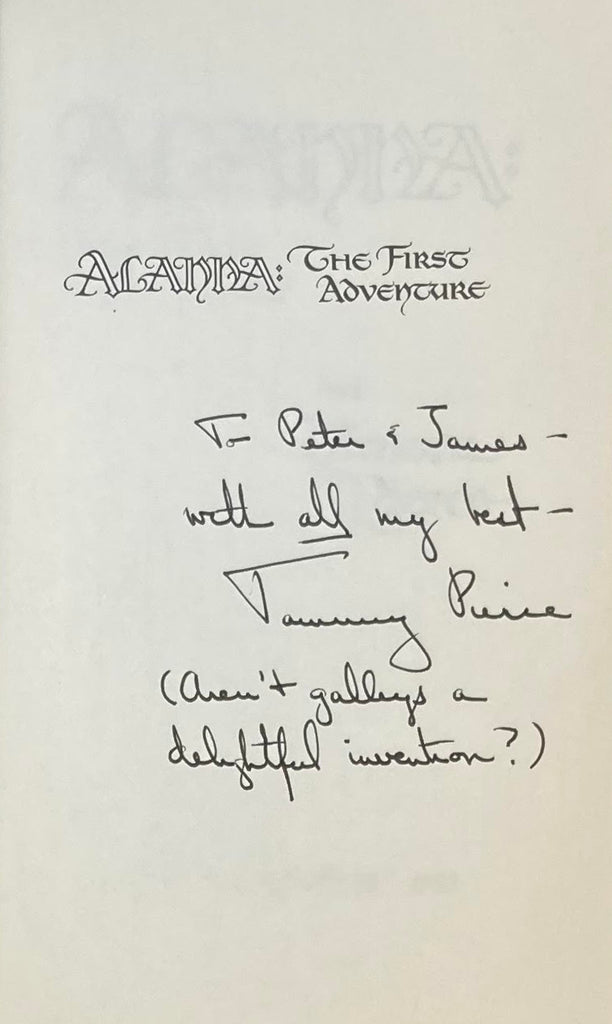 ALANNA: THE FIRST
ADVENTURE
To Peter & James –
with all my best –
Tammy Pierce
(Aren't galleys a
delightful invention?)